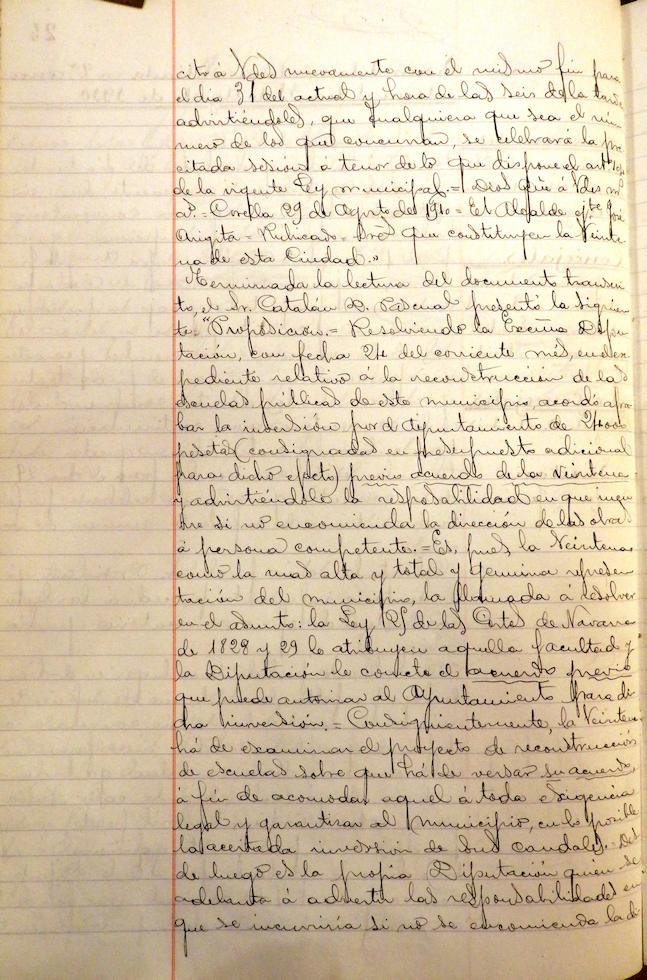 cito á Vdes nuevamente con el mismo fin para
el dia 31 del actual y hora de las seis de la tarde
advirtiéndoles, que cualquiera que sea el nú-
mero de los que concurran, se celebrará la pre
citada sesión á tenor de lo que dispone el art.
de la vigente Ley municipal.= Dios gũe á Vdes mˢ
aˢ.= Corella 29 de Agosto de 1910 = El Alcalde ejᵗᵉ José
Arigita = Rubricado = Sres que constituyen la Veinte-
na de esta Ciudad."
Terminada la lectura del documento transcri-
to, el Sr. Catalán D. Pascual presentó la siguien-
te: "Proposicion.= Resolviendo la Excma Dipu-
tación, con fecha 24 del corriente mes, en el ex-
pediente relativo á la reconstrucción de las
escuelas públicas de este municipio, acordó apro-
bar la inversión por el Ayuntamiento de 24000
pesetas (consignadas en presupuesto adicional
para dicho efecto) previo acuerdo de la Veintena
y advirtiéndole la resposabilidad en que incu-
rre si no encomienda la dirección de las obras
á persona competente.= Es, pues la Veintena
como la mas alta y total y genuina represen-
tación del municipio, la llamada á resolver
en el asunto: la Ley 25 de las Cortes de Navarra
de 1828 y 29 le atribuyen aquella facultad y
la Diputación le comete el acuerdo previo
que puede autorizar al Ayuntamiento para di-
cha inversión.= Consiguientemente, la Veintena
há de examinar el proyecto de reconstrucción
de escuelas sobre que há de versar su acuerdo,
á fin de acomodar aquel á toda exigencia
legal y garantizar al Municipio, en lo posible
la acertada inversión de sus caudales.= Des
de luego es la propia Diputación quien se
adelanta á advertir las responsabilidades en
que se incurriría si no se encomienda la di-